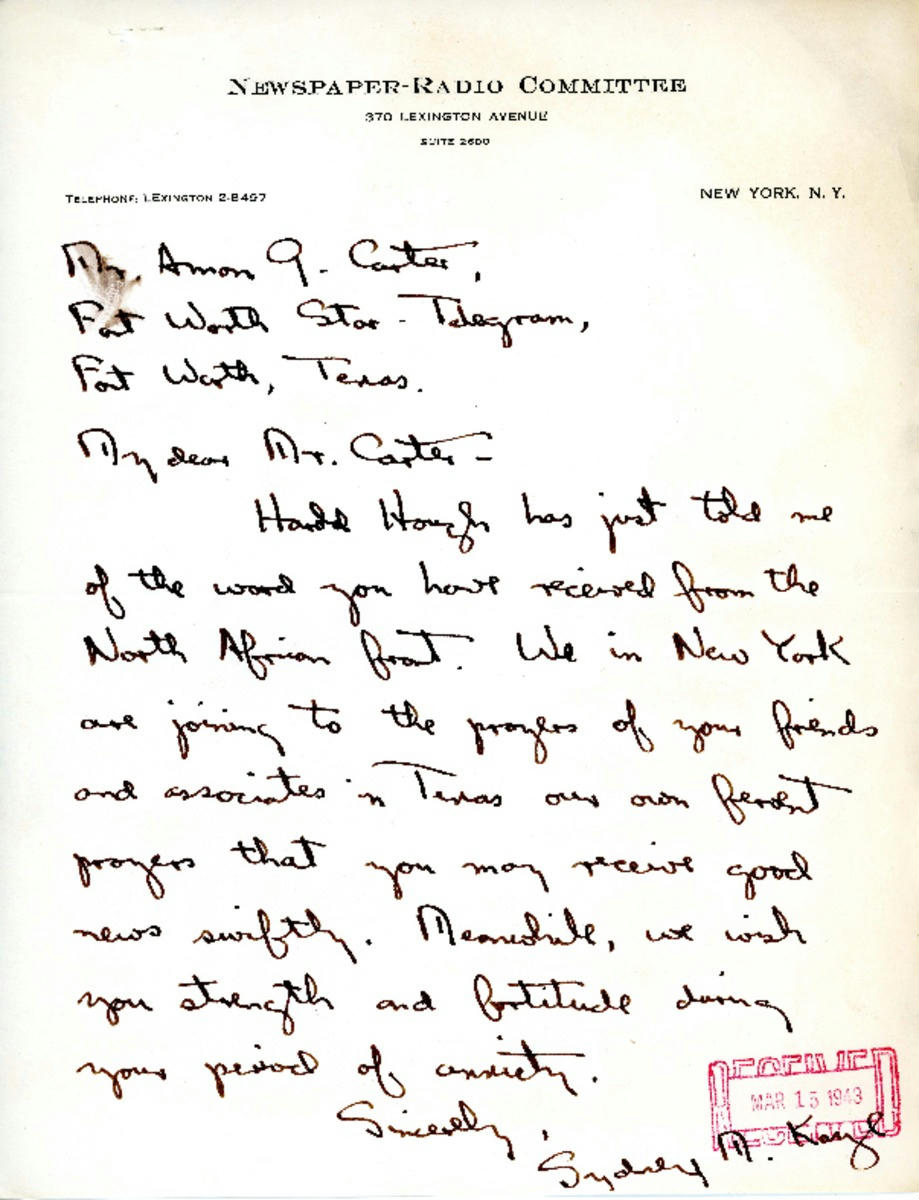 NEWSPAPER-RADIO COMMITTEE
370 LEXINGTON AVENUE
SUITE 2600
TELEPHONE: LEXINGTON 2-8497
NEW YORK, N. Y.
Mr. Amon G. Carter,
Fort Worth Star-Telegram,
Fort Worth, Texas.
My dear Mr. Carter-
Harold Hough has just told me
of the word you have received from the
North African front. We in New York
are joining to the prayers of your friends
and associates in Texas our own fervent
prayers that you may receive good
news swiftly. Meanwhile, we wish
you strength and fortitude during
your period of anxiety.
Sincerely,
RECEIVED
MAR 15 1943
Sydney M. Kaye